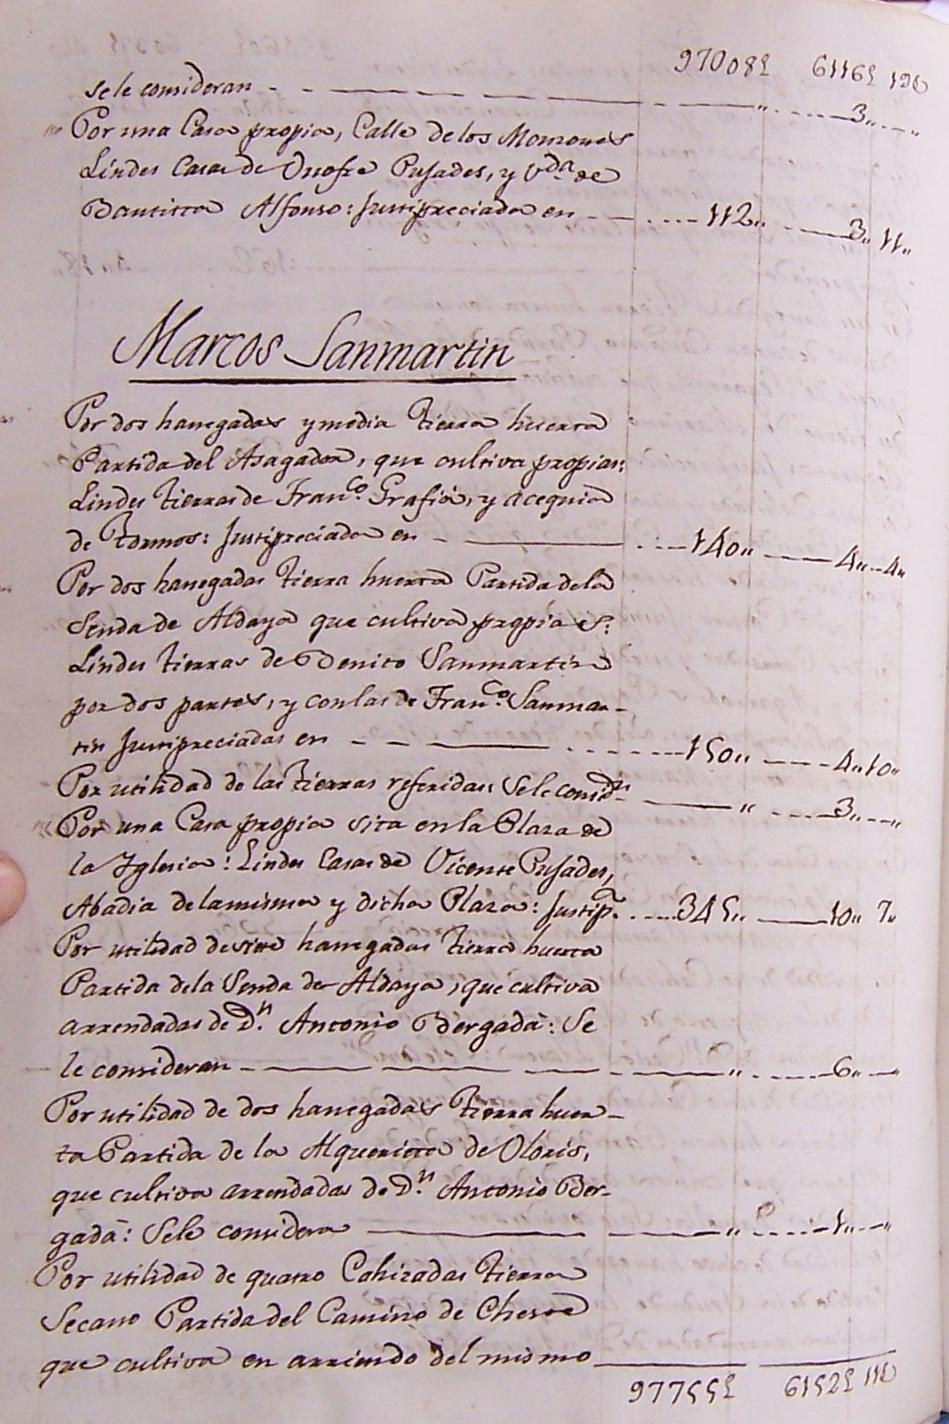 97008£ 6119£
se le consideran - - - " - - - 3" - "
Por una Casa propia, Calle de los Monzones
Lindes Casas de Onofre Pusades, y V.da de
Bautista Alfonso: Justipreciada en - - - 112" - - - 3" 11"
Marcos Sanmartin
Por dos hanegadas y media tierra huerta
Partida del Asagador, que cultiva propias:
Lindes tierras de Fran.co Grafiá, y acequia
de Tormos: Justipreciada en - - - 140" - - - 4" - 4"
Por dos hanegadas tierra huerta Partida de la
Senda de Aldaya que cultiva propias:
Lindes tierras de Benito Sanmartin
por dos partes, y con las de Fran.co Sanmar-
tin Justipreciadas en - - - 150" - - - 4" 10"
Por utilidad de las tierras referidas se le consid.n - - - " - - - 3" - "
Por una Casa propia sita en la Plaza de
la Yglesia: Lindes Casas de Vicente Pusades,
Abadia de la misma y dicha Plaza: Justip.a - - - 345" - - - 10" 7"
Por utilidad de siete hanegadas tierra huerta
Partida de la Senda de Aldaya, que cultiva
arrendadas de D.n Antonio Bergadá: Se
le consideran - - - " - - - 6" - "
Por utilidad de dos hanegadas tierra huer-
ta Partida de la Alquerieta de Oloris,
que cultiva arrendadas de D.n Antonio Ber-
gadá: Se le considera - - - " - - - 1" - "
Por utilidad de quatro Cahizadas tierra
Secano Partida del Camino de Cheste
que cultiva en arriendo del mismo
97755£ 6152£